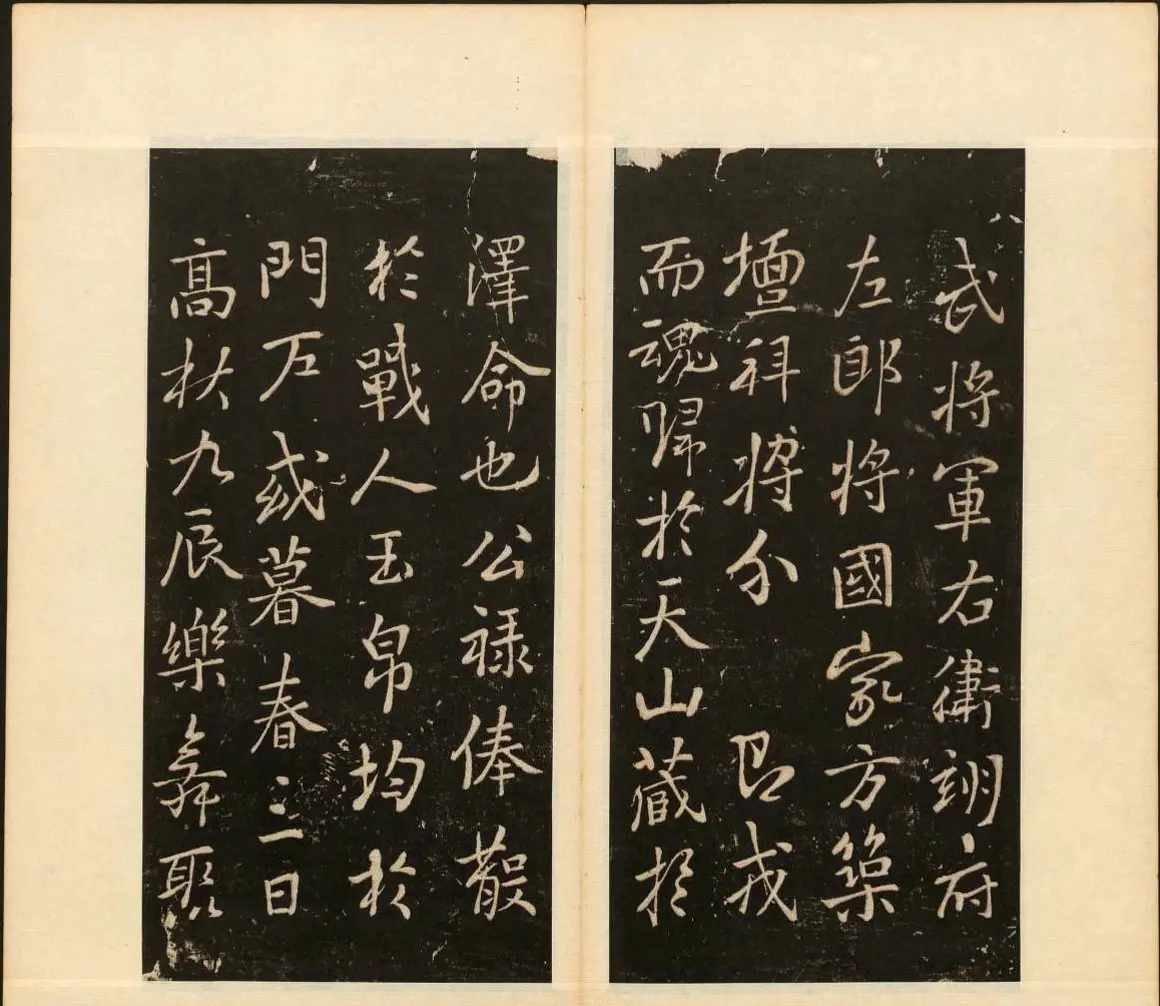 武将軍右衛翊府
左郎将國家方築
壇拜將分戎
而魂歸於天山藏於
澤命也公禄俸散
於戰人玉帛均於
門或暮春三日
高秋九辰樂舞聚